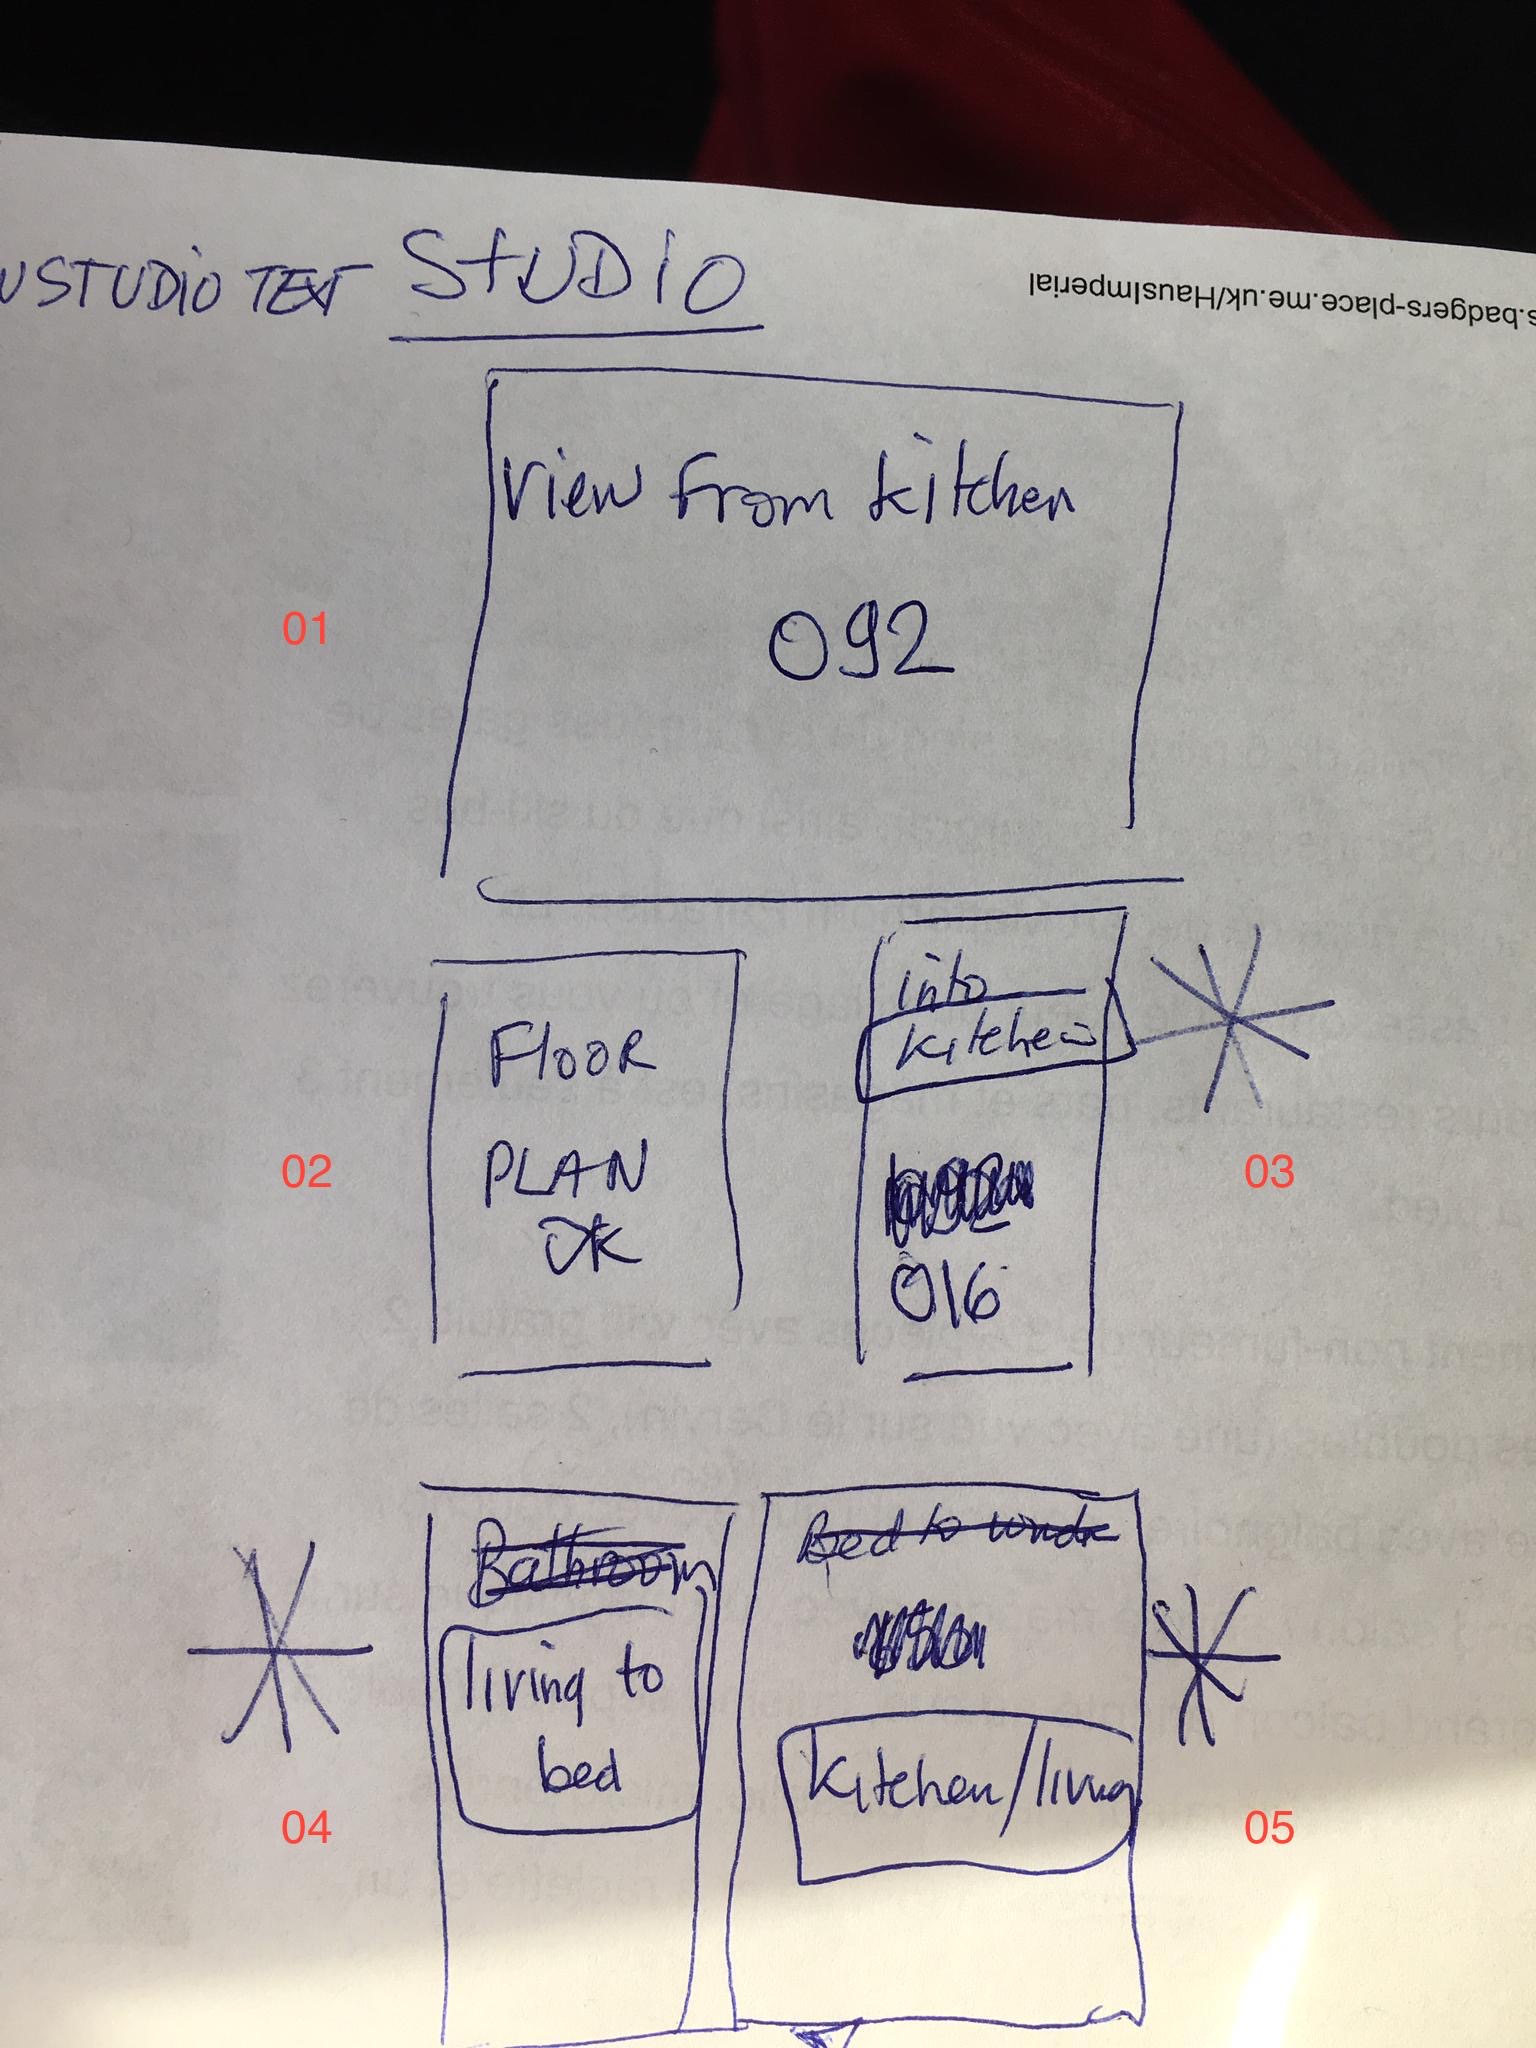 STUDIO TEXT STUDIO
s.badgers-place.me.uk/HausImperial
view from kitchen
092
01
FLOOR
PLAN
OK
02
into
kitchen
016
03
Bathroom
living to
bed
04
Bed to
kitchen/living
05